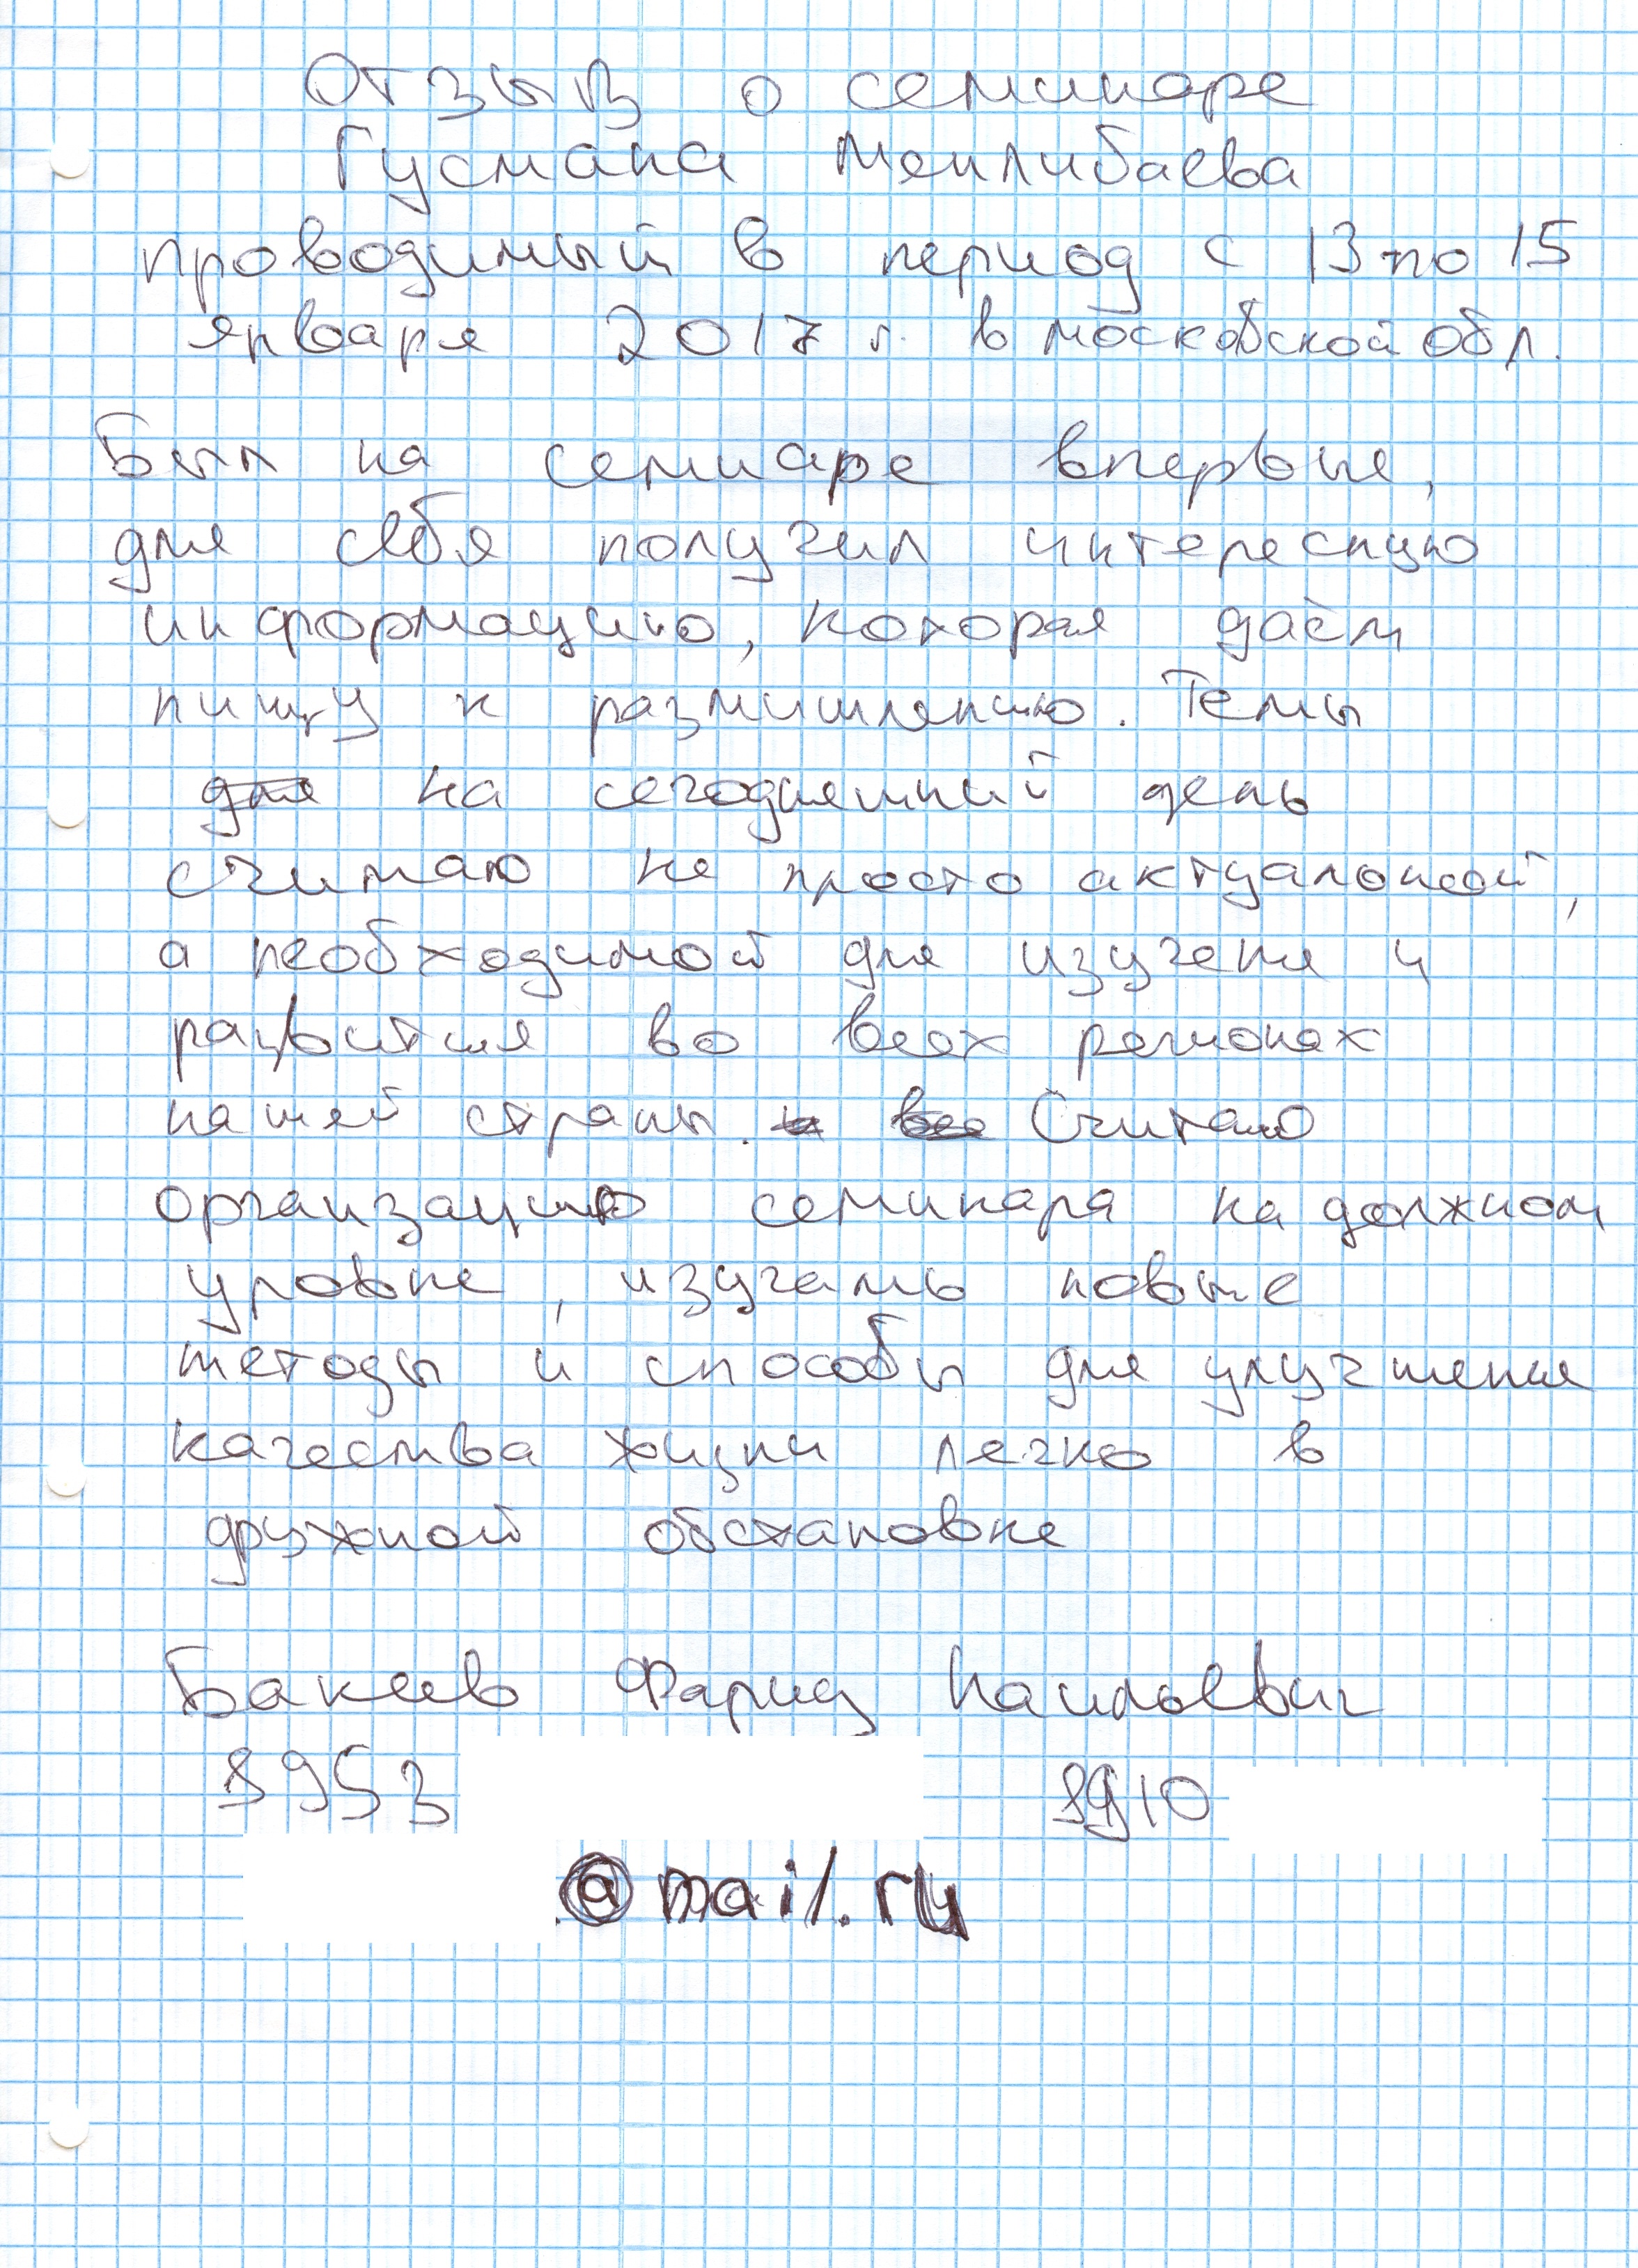 Отзыв о семинаре
Гусмана Менлибаева
проводимый в период с 13 по 15
января 2017 г. в московской обл.
Был на семиаре впервые,
для себя получил интересную
информацию, которая даём
пищу к размишлению. Темы
для на сегодняшний день
считаю не просто актуальной,
а необходимой для изучения и
развития во всех регионах
нашей страны. и все Считаю
организацию семинара на должном
уровне, изучать новые
методы и способы для улучшения
качества жизни легко в
дружной обстановке
Бакеев Фарид Наильевич
8953 8910
@mail.ru